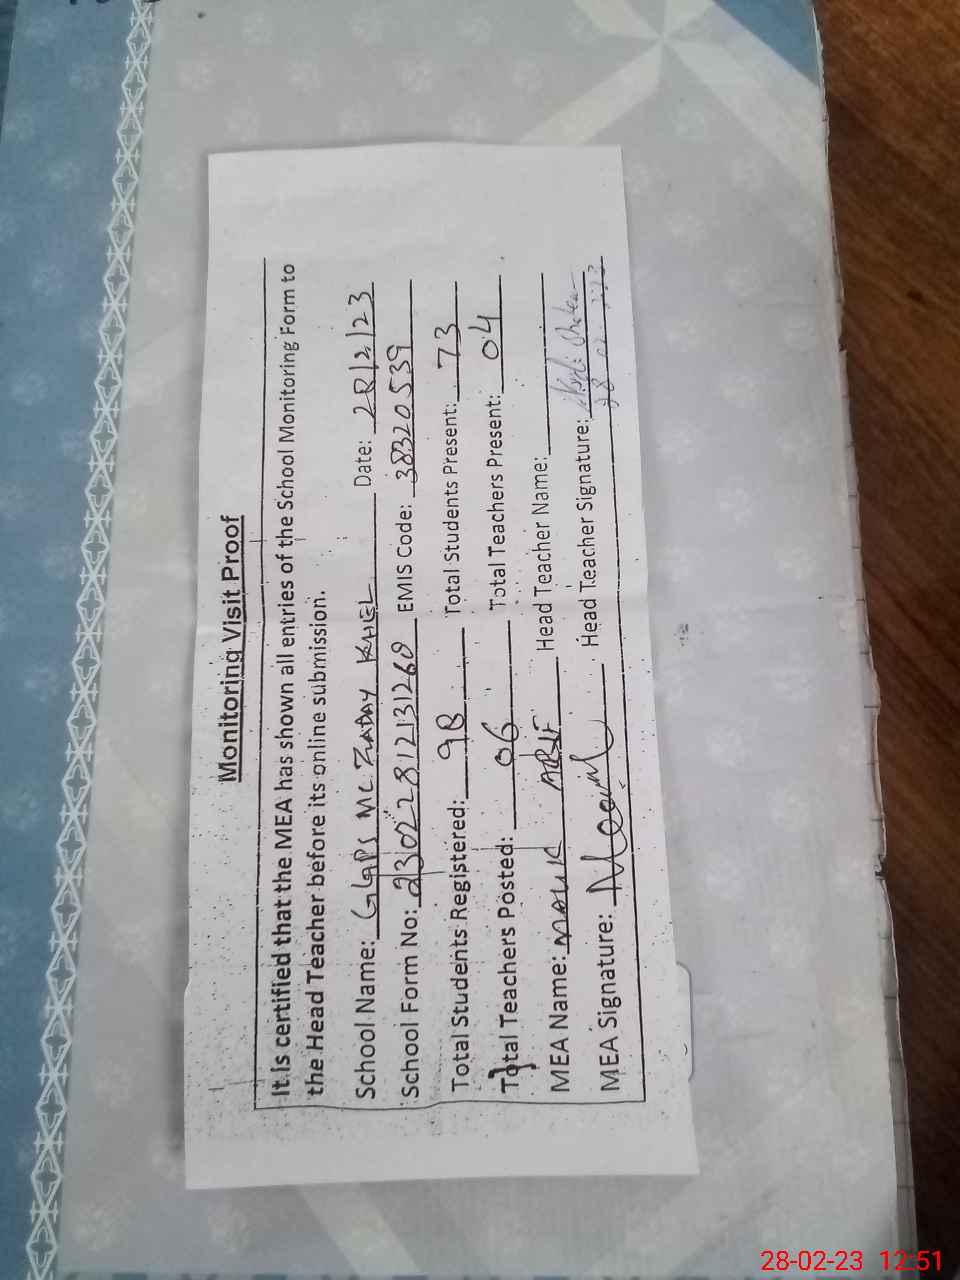 Monitoring Visit Proof
It is certified that the MEA has shown all entries of the School Monitoring Form to
the Head Teacher before its online submission.
School Name: GGPS MC ZIADAY KHEL Date: 28/2/23
School Form No: 23022812131268 EMIS Code: 38320539
Total Students Registered: 98 Total Students Present: 73
Total Teachers Posted: 06 Total Teachers Present: 04
MEA Name: MALIK ARIF Head Teacher Name:
MEA Signature: Head Teacher Signature:
28-02-23 12:51